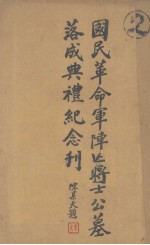 國民革命軍陣亡將士公墓
落成典禮紀念刊
陳果夫題